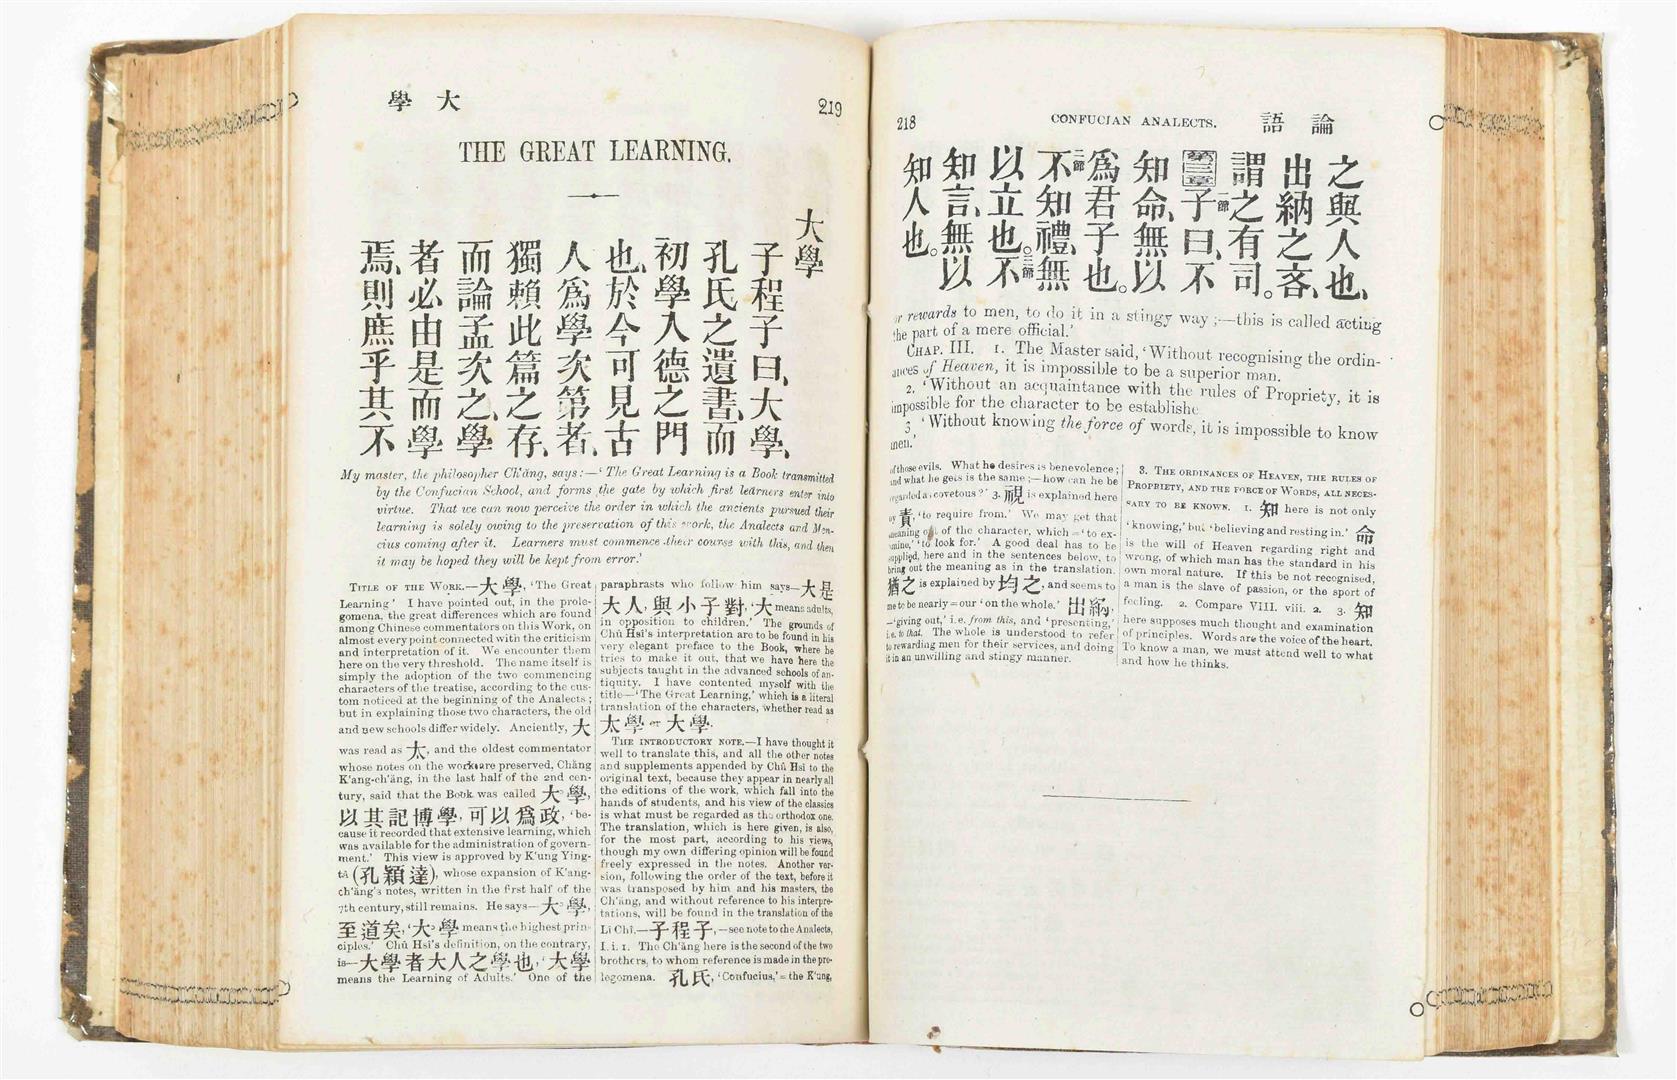 218
CONFUCIAN ANALECTS.
論語
之與人也、
出納之吝、
謂之有司。
第三章 一節 子曰、不
知命、無以
爲君子也。
二節 不知禮、無
以立也。三節 不
知言、無以
知人也。
rewards to men, to do it in a stingy way;—this is called acting
the part of a mere official.'
CHAP. III. 1. The Master said, 'Without recognising the ordin-
ances of Heaven, it is impossible to be a superior man.
2. 'Without an acquaintance with the rules of Propriety, it is
impossible for the character to be establishe
3 'Without knowing the force of words, it is impossible to know
men.'
of those evils. What he desires is benevolence;
and what he gets is the same;—how can he be
regarded as covetous?' 3. 視 is explained here
by 責, 'to require from.' We may get that
meaning out of the character, which = 'to ex-
amine,' 'to look for.' A good deal has to be
supplied, here and in the sentences below, to
bring out the meaning as in the translation.
猶之 is explained by 均之, and seems to
me to be nearly = our 'on the whole.' 出納,
—'giving out,' i.e. from this, and 'presenting,'
i.e. to that. The whole is understood to refer
to rewarding men for their services, and doing
it in an unwilling and stingy manner.
3. THE ORDINANCES OF HEAVEN, THE RULES OF
PROPRIETY, AND THE FORCE OF WORDS, ALL NECES-
SARY TO BE KNOWN. 1. 知 here is not only
'knowing,' but 'believing and resting in.' 命
is the will of Heaven regarding right and
wrong, of which man has the standard in his
own moral nature. If this be not recognised,
a man is the slave of passion, or the sport of
feeling. 2. Compare VIII. viii. 2. 3. 知
here supposes much thought and examination
of principles. Words are the voice of the heart.
To know a man, we must attend well to what
and how he thinks.
大學
219
THE GREAT LEARNING.
大學
子程子曰、大學、
孔氏之遺書、而
初學入德之門
也、於今可見古
人爲學次第者、
獨賴此篇之存、
而論孟次之、學
者必由是而學
焉、則庶乎其不
My master, the philosopher Ch'ăng, says:—'The Great Learning is a Book transmitted
by the Confucian School, and forms the gate by which first learners enter into
virtue. That we can now perceive the order in which the ancients pursued their
learning is solely owing to the preservation of this work, the Analects and Men-
cius coming after it. Learners must commence their course with this, and then
it may be hoped they will be kept from error.'
TITLE OF THE WORK.—大學, 'The Great
Learning' I have pointed out, in the prole-
gomena, the great differences which are found
among Chinese commentators on this Work, on
almost every point connected with the criticism
and interpretation of it. We encounter them
here on the very threshold. The name itself is
simply the adoption of the two commencing
characters of the treatise, according to the cus-
tom noticed at the beginning of the Analects;
but in explaining those two characters, the old
and new schools differ widely. Anciently, 大
was read as 太, and the oldest commentator
whose notes on the work are preserved, Chăng
K'ang-ch'ăng, in the last half of the 2nd cen-
tury, said that the Book was called 大學,
以其記博學, 可以爲政, 'be-
cause it recorded that extensive learning, which
was available for the administration of govern-
ment.' This view is approved by K'ung Ying-
tâ (孔穎達), whose expansion of K'ang-
ch'ăng's notes, written in the first half of the
7th century, still remains. He says—大學,
至道矣, '大學 means the highest prin-
ciples.' Chû Hsî's definition, on the contrary,
is—大學者大人之學也, '大學
means the Learning of Adults.' One of the
paraphrasts who follow him says—大是
大人, 與小子對, '大 means adults,
in opposition to children.' The grounds of
Chû Hsî's interpretation are to be found in his
very elegant preface to the Book, where he
tries to make it out, that we have here the
subjects taught in the advanced schools of an-
tiquity. I have contented myself with the
title—'The Great Learning,' which is a literal
translation of the characters, whether read as
太學 or 大學.
THE INTRODUCTORY NOTE.—I have thought it
well to translate this, and all the other notes
and supplements appended by Chû Hsî to the
original text, because they appear in nearly all
the editions of the work, which fall into the
hands of students, and his view of the classics
is what must be regarded as the orthodox one.
The translation, which is here given, is also,
for the most part, according to his views,
though my own differing opinion will be found
freely expressed in the notes. Another ver-
sion, following the order of the text, before it
was transposed by him and his masters, the
Ch'ăng, and without reference to his interpre-
tations, will be found in the translation of the
Lî Chî.—子程子,—see note to the Analects,
I. i. 1. The Ch'ăng here is the second of the two
brothers, to whom reference is made in the pro-
legomena. 孔氏, 'Confucius,' = the K'ung,